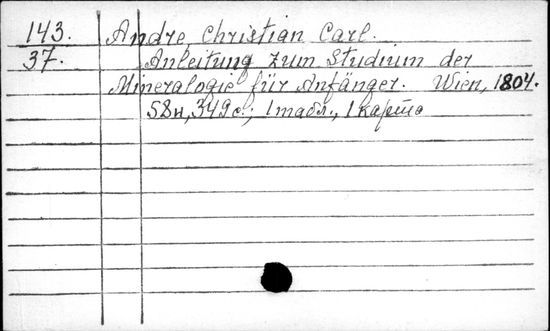 143. Andre, Christian Carl.
37. Anleitung zum Studium der
Mineralogie für Anfänger. Wien, 1804.
58н, 349с.; 1 табл., 1 карта